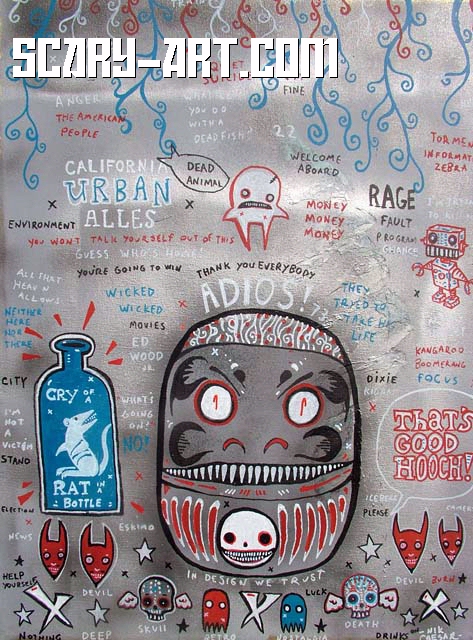 SCARY-ART.COM
FINE
ANGER
THE AMERICAN
PEOPLE
YOU DO
WITH A
DEAD FISH?
22
TORMEN
INFORMAT
ZEBRA
WELCOME
ABOARD
DEAD
ANIMAL
CALIFORNIA
URBAN
ALLES
ENVIRONMENT
MONEY
MONEY
MONEY
RAGE
FAULT
PROGRAM
CHANGE
YOU WON'T TALK YOURSELF OUT OF THIS
GUESS WHO'S HOME!
YOU'RE GOING TO WIN
THANK YOU EVERYBODY
ADIOS!
ALL THAT
HEAVN
ALLOWS
NEITHER
HERE
NOR
THERE
WICKED
WICKED
MOVIES
ED
WOOD
JR
THEY
TRIED TO
TAKE HIS
LIFE
KANGAROO
BOOMERANG
FOCUS
CITY
DIXIE
CRY OF A
RAT IN A
BOTTLE
I'M
NOT
A
VICTIM
STAND
WHAT'S
GOING
ON?
NO!
THAT'S
GOOD
HOOCH!
ICEBERG
PLEASE
CAMERA
ELECTION
NEWS
ESKIMO
HELP
YOURSELF
DEVIL
IN DESIGN WE TRUST
LUCK
DEVIL
BURN
NOTHING
DEEP
SKULL
RETRO
NOSTALGIA
DEATH
DRINK ON
NIK
CAESAR